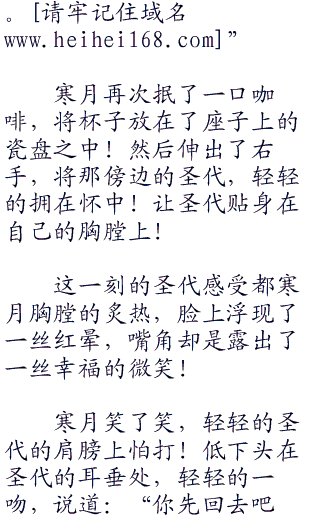 。[请牢记住域名
www.heihei168.com]”
寒月再次抿了一口咖
啡，将杯子放在了座子上的
瓷盘之中！然后伸出了右
手，将那傍边的圣代，轻轻
的拥在怀中！让圣代贴身在
自己的胸膛上！
这一刻的圣代感受都寒
月胸膛的炙热，脸上浮现了
一丝红晕，嘴角却是露出了
一丝幸福的微笑！
寒月笑了笑，轻轻的圣
代的肩膀上怕打！低下头在
圣代的耳垂处，轻轻的一
吻，说道：“你先回去吧